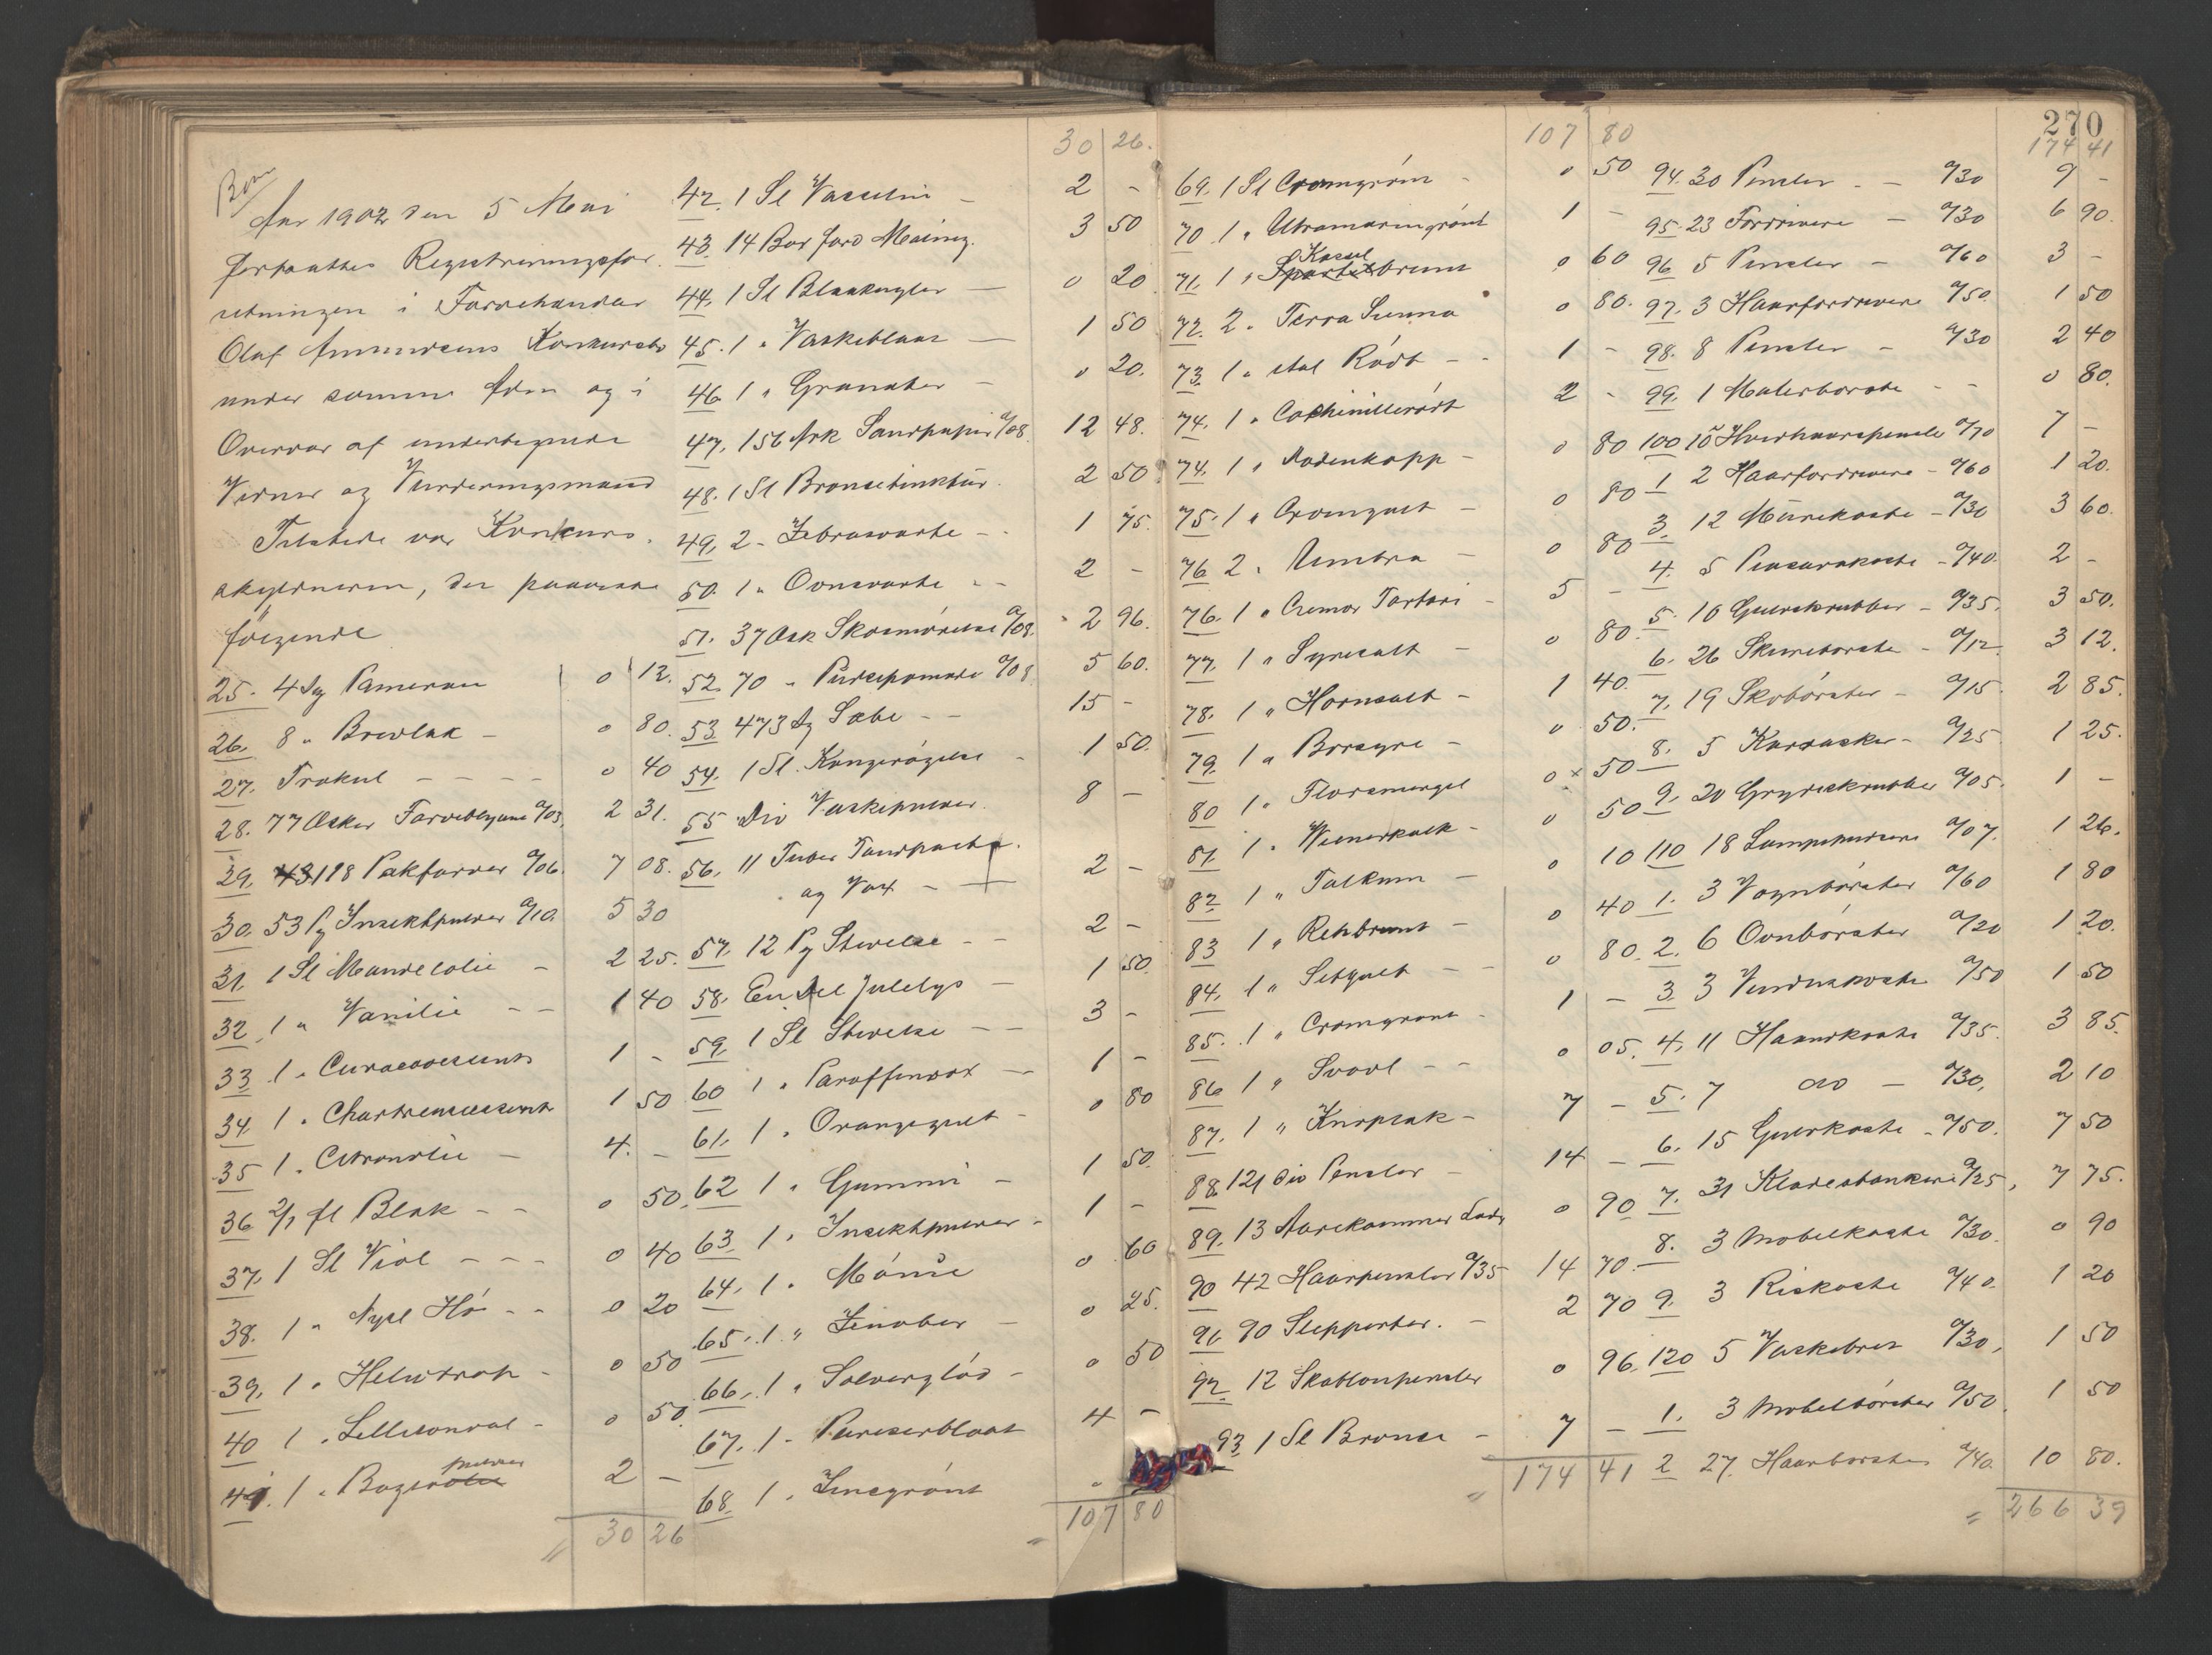 Bom
Aar 1902 den 5 Mai
fortsattes Registreringsfor
retningen i Farvehandler
Olaf Amundsens Konkursbo
under samme Adm og i
Overvær af undertegnede
Vidner og Vurderingsmænd
Tilstede var Konkurs
skyldneren, der paaviste
følgende
25. 4 Pameran 0 12.
26. 8 " Brevlak - 0 80.
27. Trokul - - - - 0 40
28. 77 Æsker Farveblyant a/03. 2 31.
29. 118 Pakfarver a/06. 7 08.
30. 53 Pg Insektpulver a/10. 5 30
31. 1 Sl Mandelolie - 2 25.
32. 1 " Vanilie - - 1 40
33. 1 " Curacaoessents 1 -
34. 1 " Chartreuseessents 1 50
35. 1 " Citronolie - 4. -
36. 2/1 fl Blæk - - 0 50.
37. 1 Sl Viol - - - 0 40
38. 1 " Nysl Hö - - 0 20
39. 1 " Heliotrop - 0 50
40. 1 " Lilleconval - 0 50.
41. 1 " Bagerpulver 2 -
= 30 26
30 26.
42. 1 Sl Vasselin - 2 -
43. 14 Bør ford Maling. 3 50
44. 1 Sl Blaakugler - 0 20
45. 1 " Vaskeblaat - 1 50
46. 1 " Granater - 0 20.
47. 156 Ark Sandpapir a/08. 12 48.
48. 1 Sl Bronsetinktur. 2 50
49. 2 - Zebrasvarte - - 1 75.
50. 1 " Ovnsvarte - - 2 -
51. 37 Æsk Skosmörelse a/08. 2 96.
52. 70 - Pudsepomade a/08 5 60.
53. 473 Sæbe - - 15 -
54. 1 Sl. Kongerögelse - 1 50.
55. Div Vaskepulver. 8 -
56. 11 Tuber Tandpasta.
og Vox - - 2 -
57. 12 Pg Stivelse - - 2 -
58. En Del Julelys - 1 50.
59. 1 Sl Stivelse - - 3 -
60. 1 " Paraffinvox - 1 -
61. 1 " Orangegult - 0 80
62. 1 " Gummi - 1 50.
63. 1 " Insektpulver - 1 -
64. 1 " Mönie 0 60
65. 1 " Zinober - 0 25.
66. 1 " Solverglöd - 0 50
67. 1 - Pariserblaat 4 -
68. 1 " Zinkgrönt
= 107 80
107 80
69. 1 Sl Cromgrön - 0 50
70. 1 " Utramaringrönt 1 -
71. 1 " Kassel brunt 0 60
72. 2 " Terra Sienna 0 80.
73. 1 " ital Rödt - - 1 -
74. 1 " Cochinillerödt 2 -
74. 1 " Dodenkopp - 0 80
75. 1 " Cromgult - 0 80
76. 2 " Umbra - 0 80
76. 1 " Cremor Tartari - 5 -
77. 1 " Syresalt - 0 80.
78. 1 " Hornsalt - 1 40.
79. 1 " Borsyre - 0 50.
80. 1 " Florsmergel 0 50
81. 1 " Wienerkalk - 0 50
82. 1 " Talkum - 0 10
83. 1 " Rehbrunt - 0 40
84. 1 " Sitgult - - 0 80.
85. 1 " Cromgrønt - 1 -
86. 1 " Svovl - - 0 05.
87. 1 " Knoplak - 7 -
88. 121 div Pensler - 14 -
89. 13 Aarekammer Lodr 0 90
90. 42 Haarpensler a/35 14 70.
91. 90 Slepperter. - 2 70
92. 12 Skablonpensler 0 96.
93. 1 Sl Bronse - 7 -
= 174 41
270
174 41
94. 30 Pensler - - a/30 9 -
95. 23 Fordrivere - a/30 6 90.
96. 5 Pensler - a/60 3 -
97. 3 Haarfordrivere a/50. 1 50
98. 8 Pensler - a/30 2 40
99. 1 Malerborste - - 0 80.
100. 10 Hvidhaarspensle a/70 7 -
1. 2 Haarfordrivere - a/60 1 20.
3. 12 Murekoste - a/30 3 60.
4. 5 Piassavakoste - a/40. 2 -
5. 10 Gulvskrubber - a/35. 3 50.
6. 26 Skureborste - a/12. 3 12.
7. 19 Skobörster - a/15. 2 85.
8. 5 Karvasker - a/25 1 25.
9. 20 Grydeskrubber a/05. 1 -
110. 18 Lampepudsere a/07. 1 26.
1. 3 Vognbörster a/60 1 80
2. 6 Ovnbörster a/20 1 20.
3. 3 Vinduskoste a/50 1 50
4. 11 Haandkoste a/35. 3 85.
5. 7 do - a/30. 2 10
6. 15 Gulvkoste - a/50. 7 50
7. 31 Klædesbankere a/25. 7 75.
8. 3 Mobelkoste a/30. 0 90
9. 3 Riskoste a/40. 1 20
120. 5 Vaskebret a/30. 1 50
1. 3 Mobelbörster a/50. 1 50
2. 27. Haarborster a/40. 10 80.
= 266 39